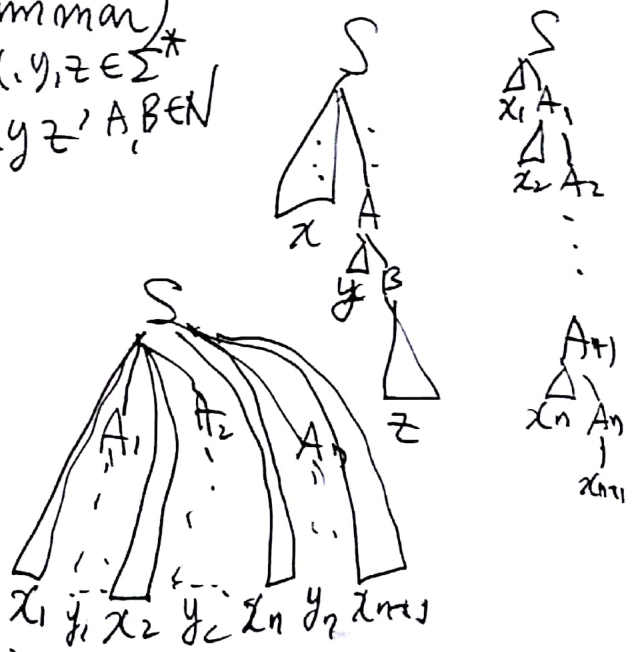 mmar)
x, y, z ∈ Σ*
y z' A, B ∈ N
S
x
A
y B
z
S
x₁ A₁
x₂ A₂
Aₙ₊₁
xₙ Aₙ
xₙ₊₁
S
A₁ A₂ Aₙ
x₁ y₁ x₂ y₂ xₙ yₙ xₙ₊₁